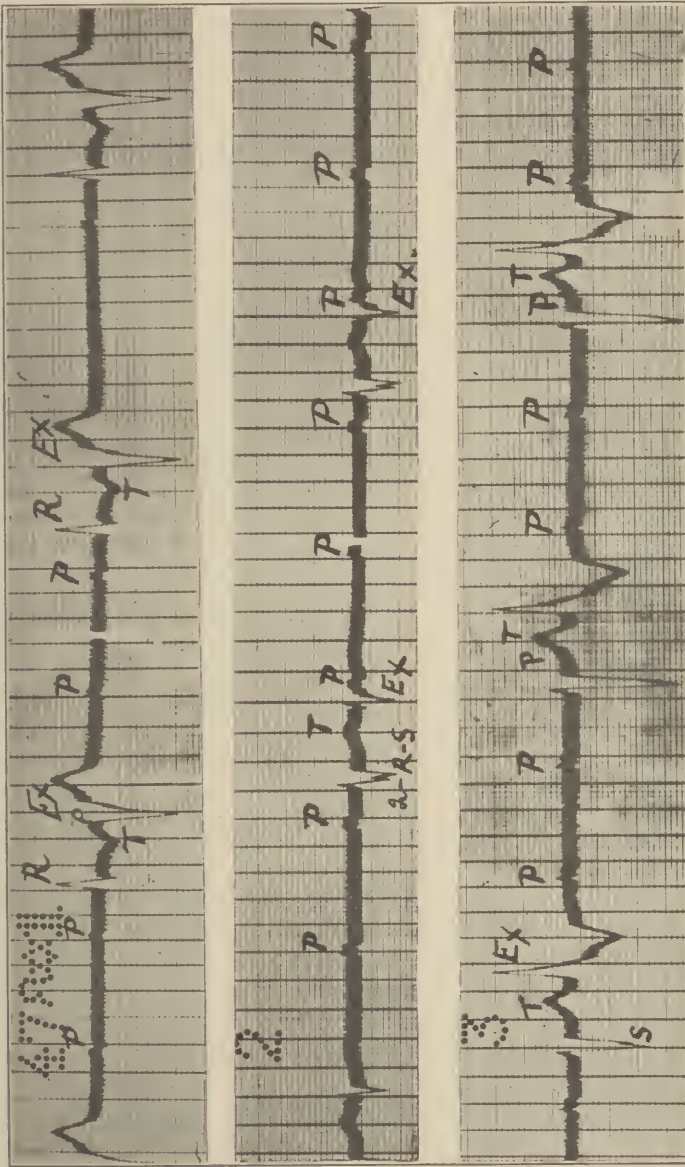 P P R T Ex P P R T Ex
2 P P 2-R-S T P Ex P P P Ex. P P
3 S T Ex P P P T P P P T P P